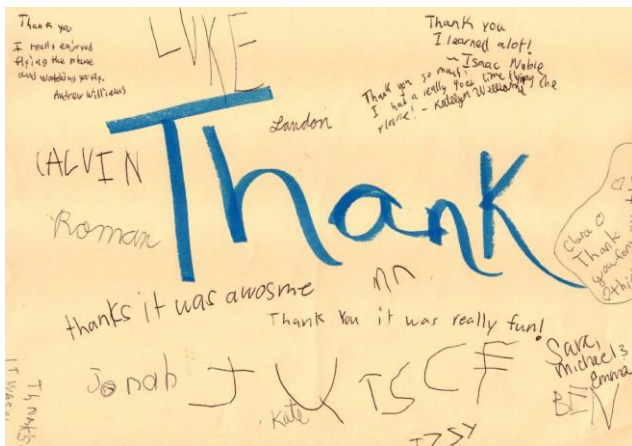 Thank you
I really enjoyed
flying the plane
and watching
Andrew Williams
LUKE
Thank you
I learned alot!
~ Isaac Noble
Thank you so much!
I had a really good time flying the
plane! - Katelyn Williams
Landon
CALVIN
Thank
Roman
Clara O
Thank
you for
thanks it was awosme
Thank You it was really fun!
Jonah
Kate
Sara,
Michael &
Emma
BEN
IZSY
Thanks
it was